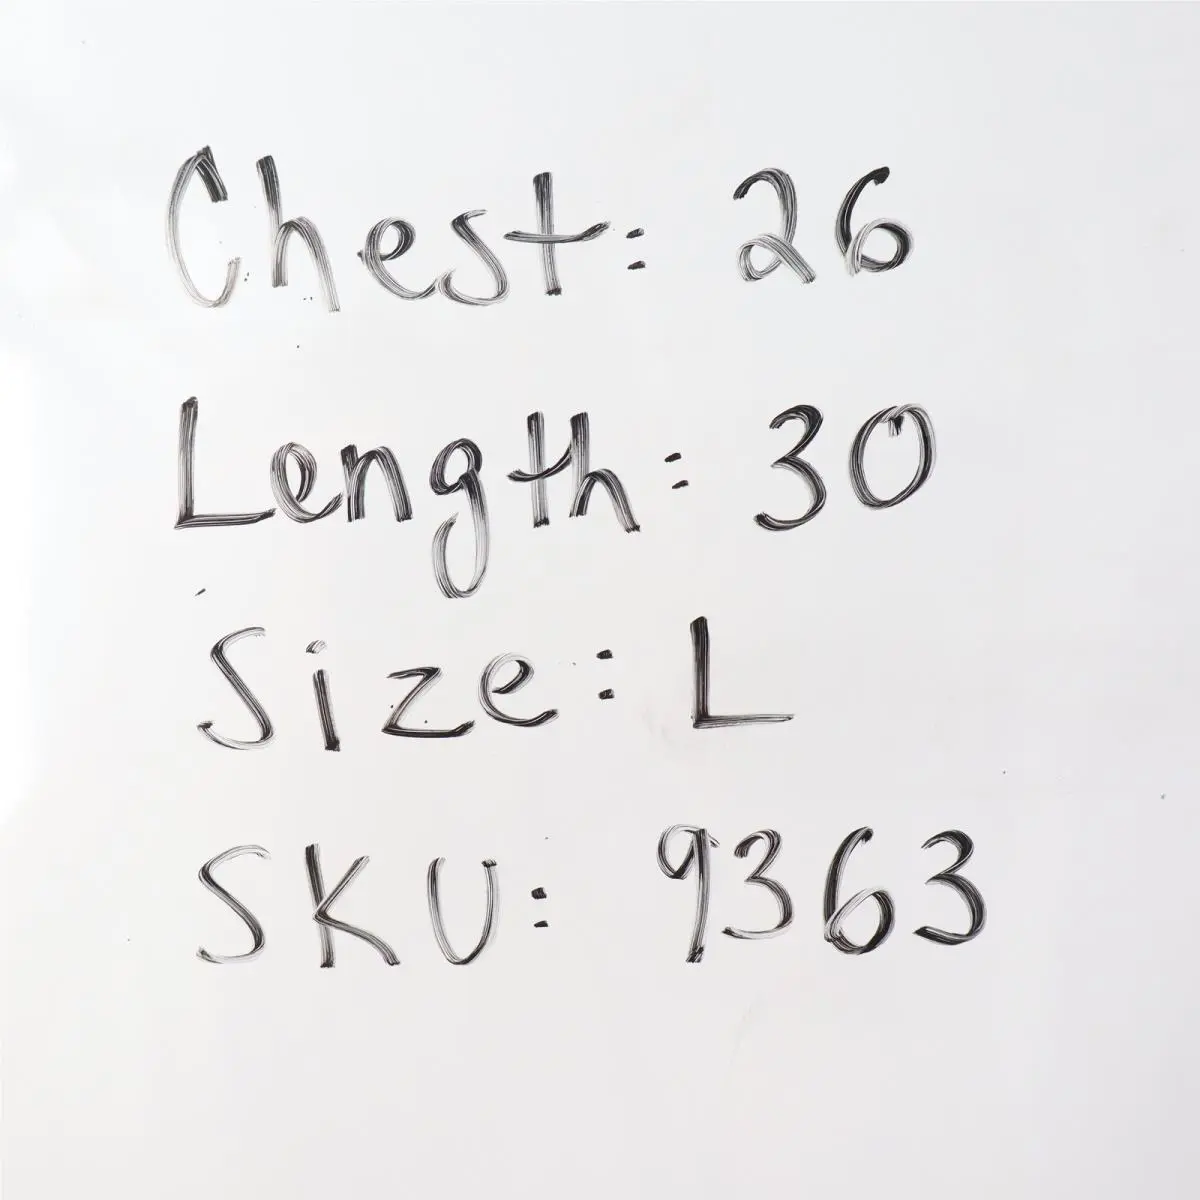 Chest: 26
Length: 30
Size: L
SKU: 9363